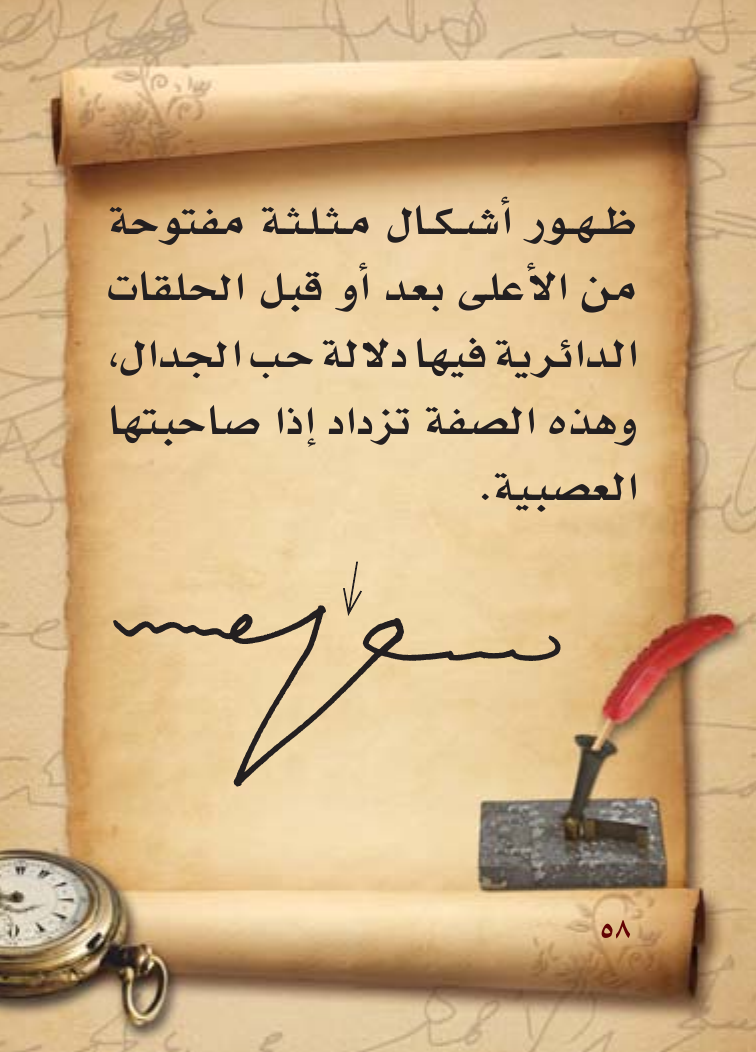 ظهور أشكال مثلثة مفتوحة
من الأعلى بعد أو قبل الحلقات
الدائرية فيها دلالة حب الجدال،
وهذه الصفة تزداد إذا صاحبتها
العصبية.
٥٨